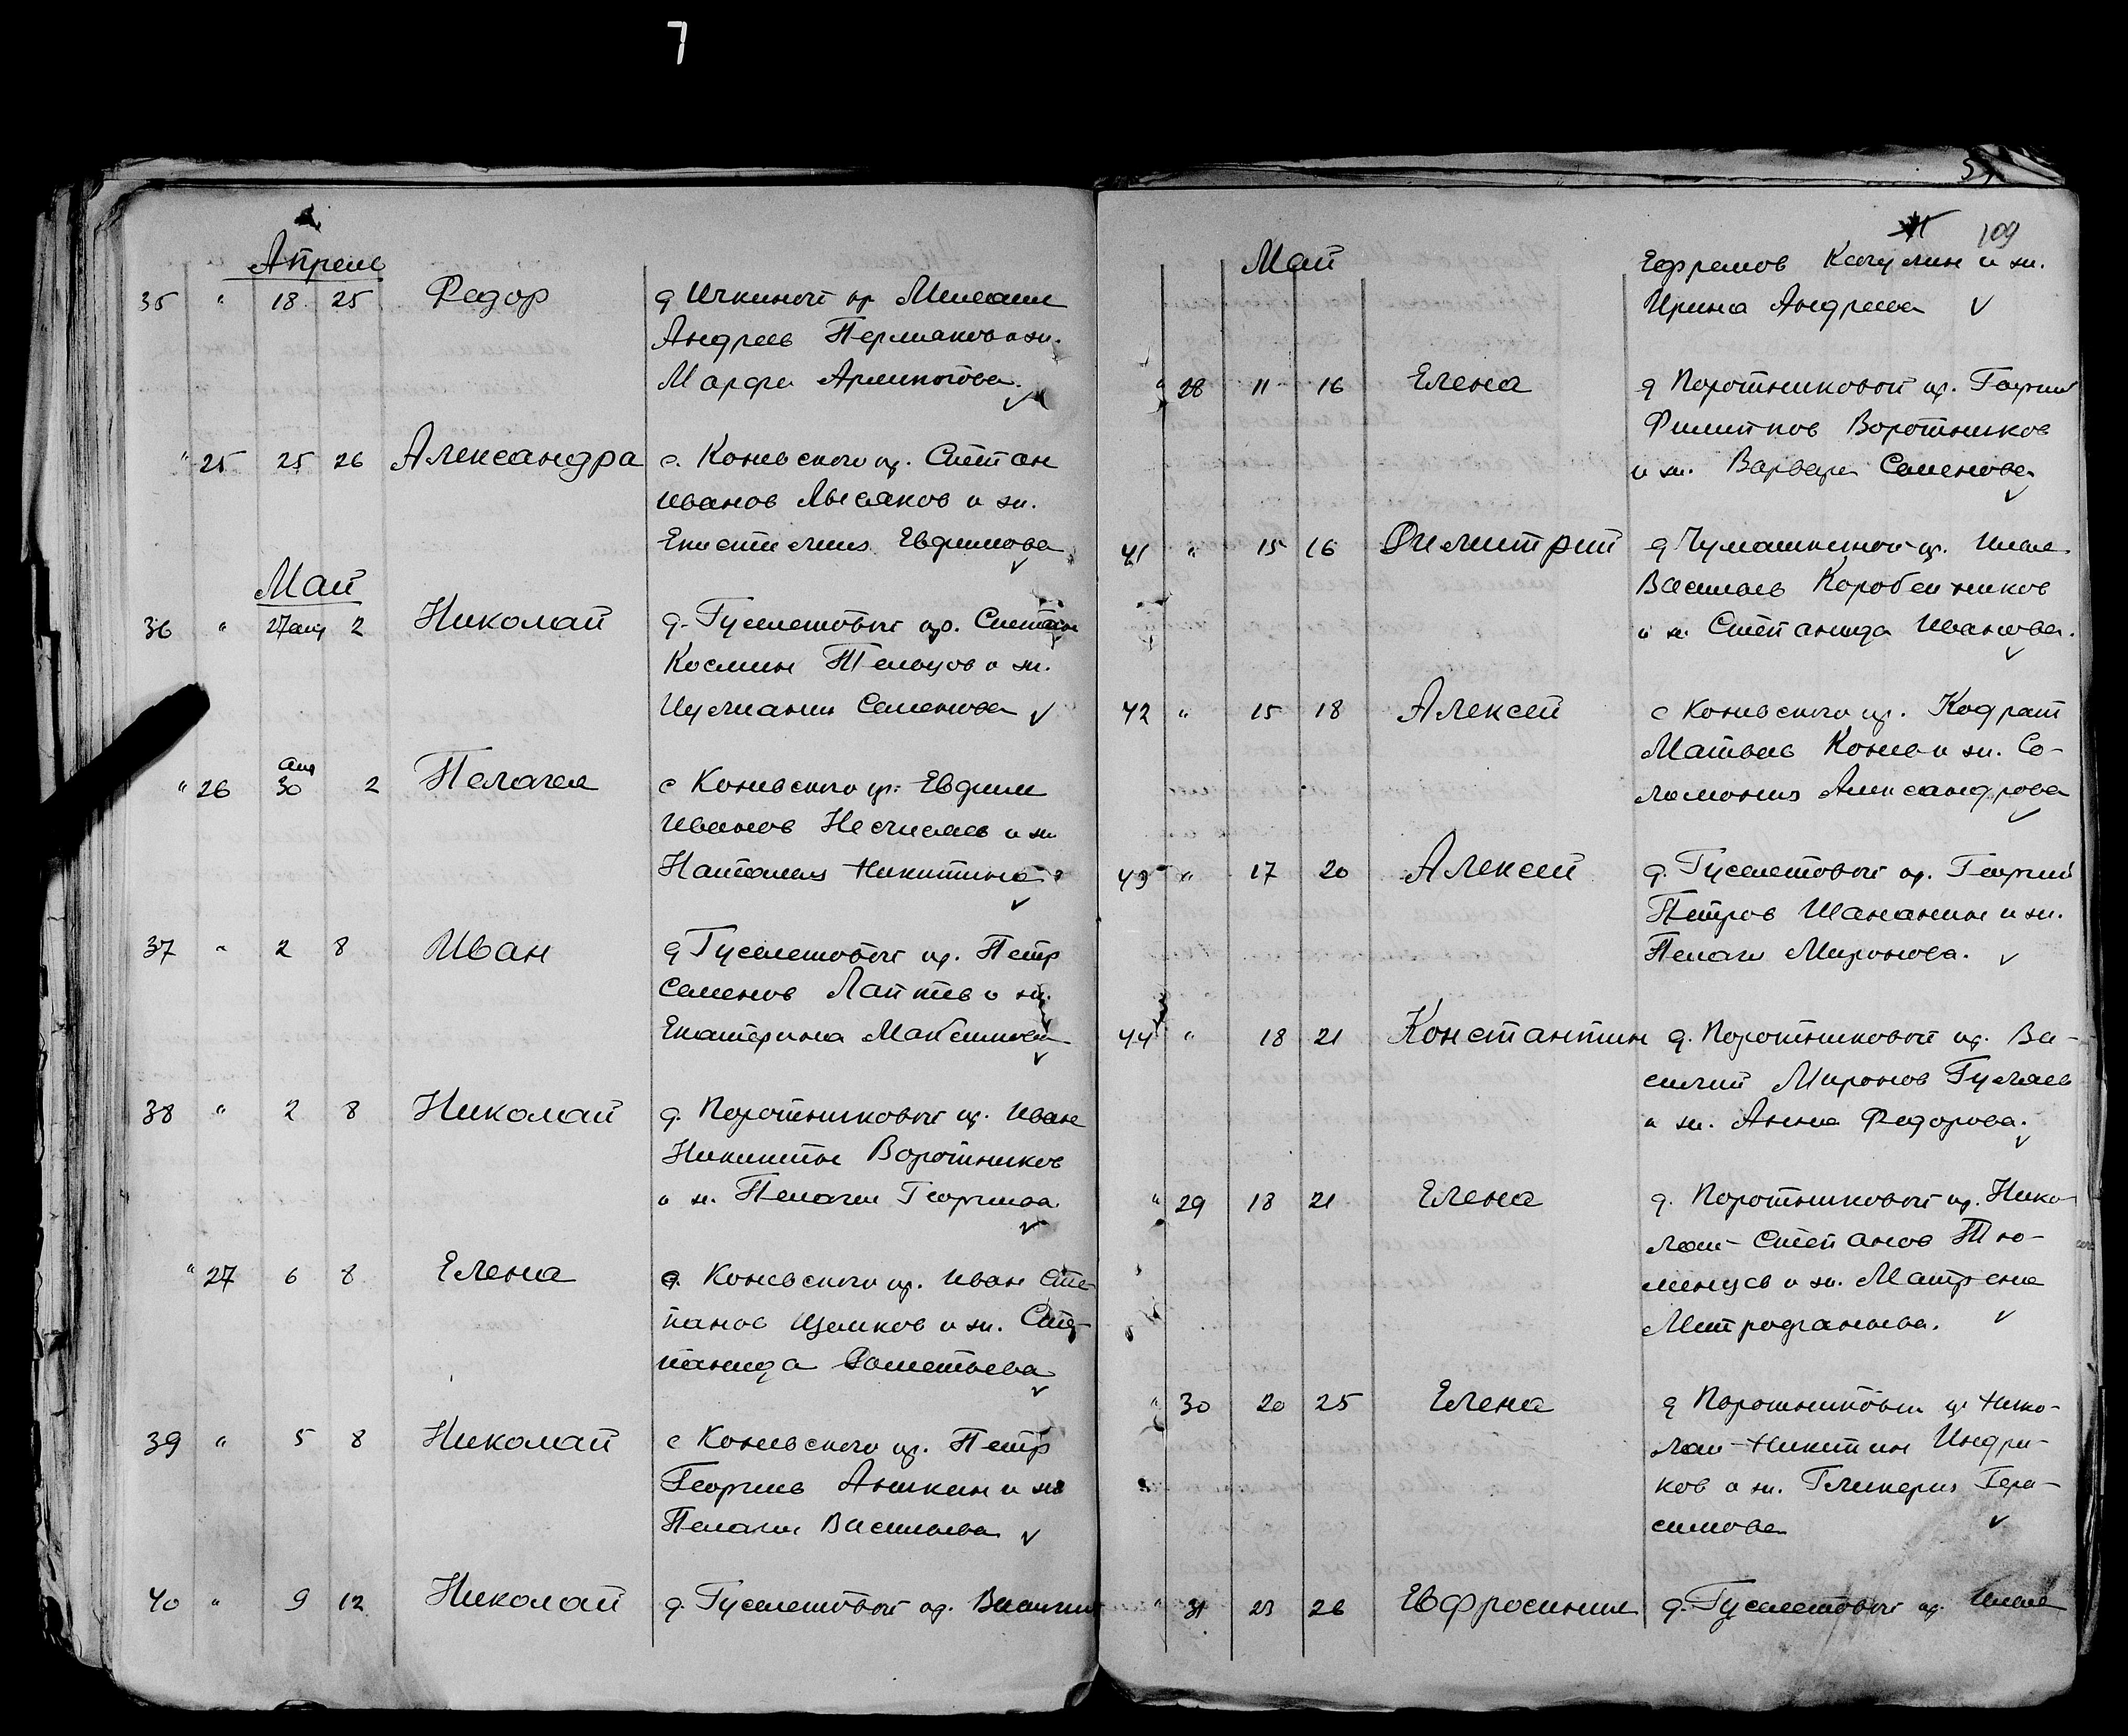 7
Апрель
35 " 18 25 Федор д Ичкиной кр Михаил
Андреев Пермяков и ж.
Марфа
" 25 25 26 Александра с. Коневского кр. Степан
Иванов Лысяков и ж.
Епистимия Евфимова
Май
36 " 27 апр 2 Николай д. Гуселетовой кр. Степан
Космин Певцов и ж.
Иулиания Семенова
" 26 апр 30 2 Пелагея с Коневского кр. Евфим
Иванов и ж
Наталия Никитина
37 " 2 8 Иван д Гуселетовой кр. Петр
Семенов Лаптев и ж.
Екатерина Максимова
38 " 2 8 Николай д. Поротниковой кр. Иван
Никитин Воротников
и ж. Пелагия Георгиева
" 27 6 8 Елена с. Коневского кр. Иван Сте-
панов и ж. Сте-
панида
39 " 5 8 Николай с Коневского кр. Петр
Георгиев Аникин и ж
Пелагия Васильева
40 " 9 12 Николай д. Гуселетовой кр. Василий
109
Май
Ефремов и ж.
Ирина Андреева
" 28 11 16 Елена д Поротниковой кр. Георгий
Филиппов Воротников
и ж. Варвара Семенова
41 " 15 16 Димитрий д Чумашкиной кр. Иван
Васильев Коробейников
и ж. Степанида Иванова.
42 " 15 18 Алексей с Коневского кр. Кодрат
Матвеев Конев и ж. Со-
ломония Александрова
43 " 17 20 Алексей д. Гуселетовой кр. Георгий
Петров Шанаткин и ж.
Пелагия Миронова.
44 " 18 21 Константин д. Поротниковой кр. Ва-
силий Миронов Гуляев
и ж. Анна Федорова.
" 29 18 21 Елена д. Поротниковой кр. Нико-
лай Степанов Тю-
менцев и ж. Матрена
Митрофанова.
" 30 20 25 Елена д Поротниковой кр Нико-
лай Никитин Индри-
ков и ж. Гликерия Гера-
симова
" 31 23 26 Евфросиния д. Гуселетовой кр.